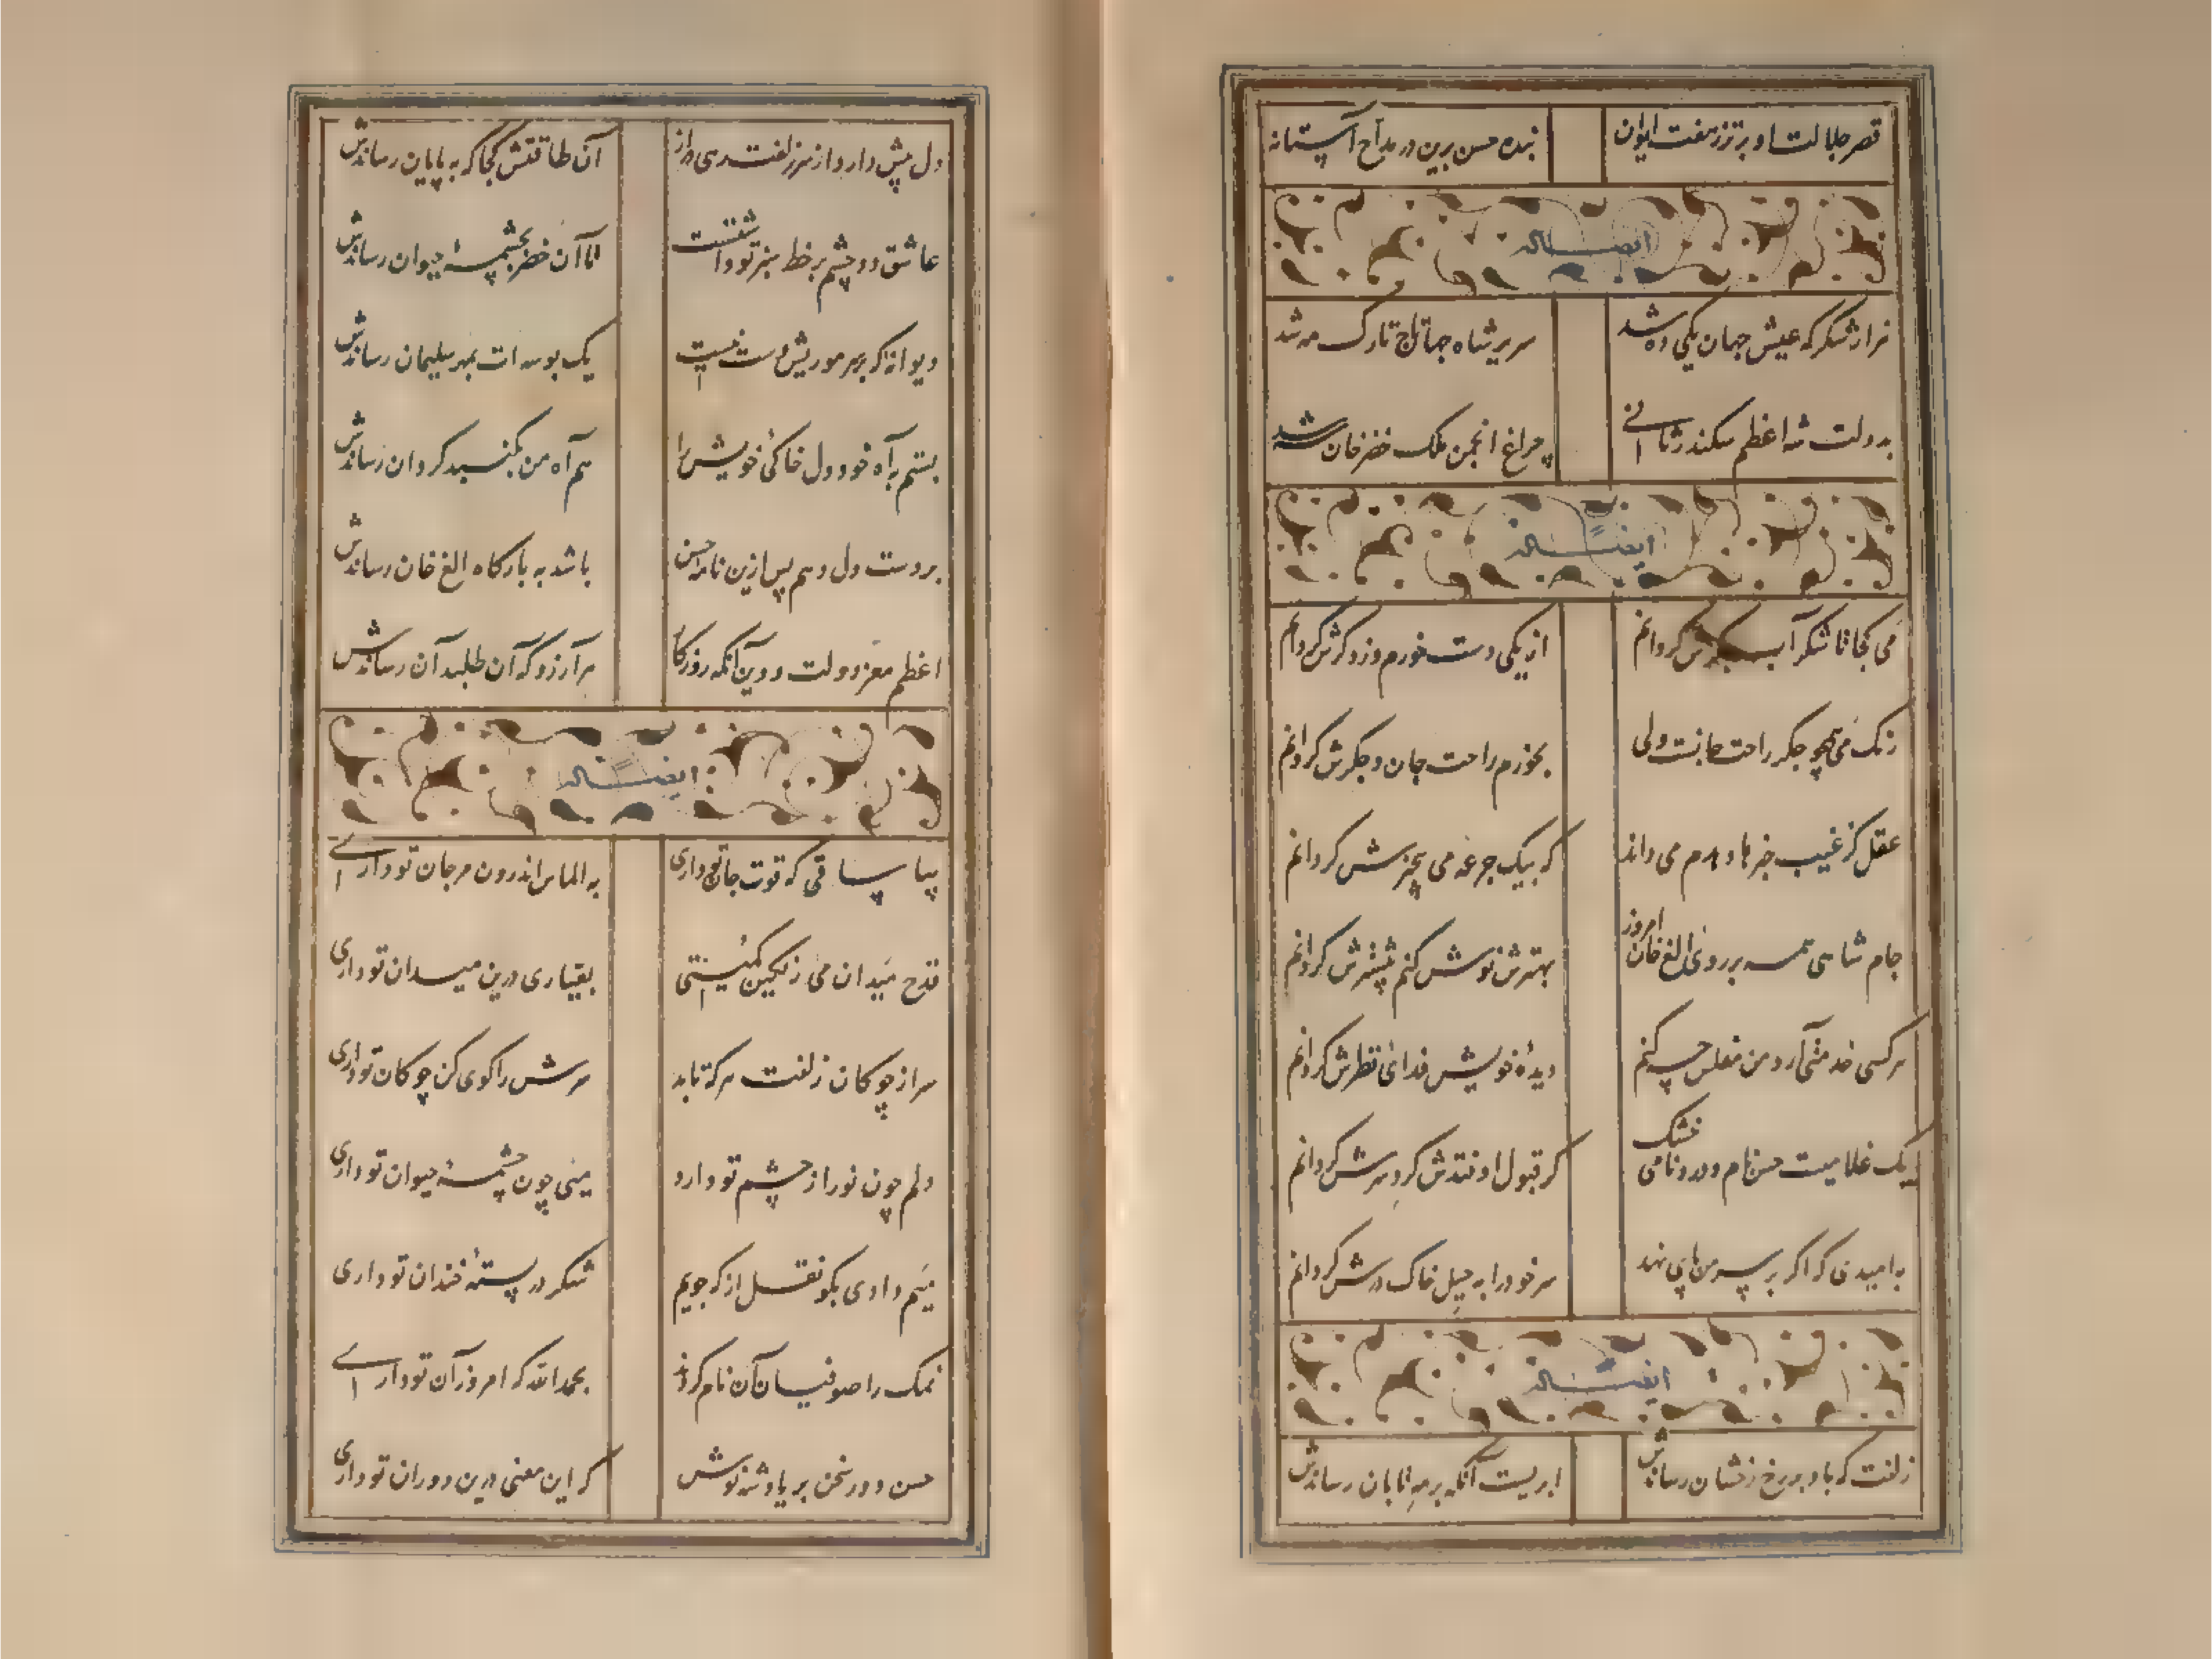 قصر جلالت او برتر ز هفت ایوان بنده حسن برین در مداح آستانه
ایضا له
هزار شکر که عیش جهان یکی ده شد سریر شاه جهان تاج تارک مه شد
بدولت شه اعظم سکندر ثانی چراغ انجمن ملک خضرخان شه شد
ایضاً له
می کجا تا شکر آب کرش گردانم از یکی دست خورم وز دگرش گردانم
رنگ می همچو جگر راحت جانست ولی بخورم راحت جان و جگرش گردانم
عقل کز غیب خبرها دهدم می داند که بیک جرعه می بیخبرش گردانم
جام شاهی همه بر روی الغ خان امروز بهترش نوش کنم بیشترش گردانم
هر کسی خدمتی آرد من مفلس چه کنم دیده خویش فدای نظرش گردانم
یک غلامیست حسن نام و در و نامی خشک گر قبول اوفتدش گرد سرش گردانم
به امیدی که اگر بر سر من پای نهد سر خود را به حیل خاک درش گردانم
ایضاً له
زلفت که باد بر رخ رخشان رساندش ابریست آنکه بر مه تابان رساندش
دل پیش دارد از سر زلفت رهی دراز آن طاقتش کجا که به پایان رساندش
عاشق دو چشم بر خط سبز تو داشتست تا آن خضر بچشمهٔ حیوان رساندش
دیوانهٔ که بر سر موریش دست نیست یک بوسه ات بمهر سلیمان رساندش
بستم بآه خود دل خاکی خویش را هم آه من بگنبد گردان رساندش
بر دست دل دهم پس ازین نامه حسن باشد به بارگاه الغ خان رساندش
اعظم معز دولت و دین آنکه روزگار هر آرزو که آن طلبد آن رساندش
ایضاً له
بیا ساقی که قوت جان تو داری به الماس اندرون مرجان تو داری
قدح میدان می رنگین کمیتی بقیاری درین میدان تو داری
سر از چوگان زلفت هر که تابد سرش را گوی کن چوگان تو داری
دلم چون نور از چشم تو دارد میی چون چشمهٔ حیوان تو داری
میم دادی بگو نقل از که جویم شکر در پستهٔ خندان تو داری
نمک را صوفیان آن نام کردند بحمدالله که امروز آن تو داری
حسن دور سخن بر یاد شه نوش که این معنی درین دوران تو داری